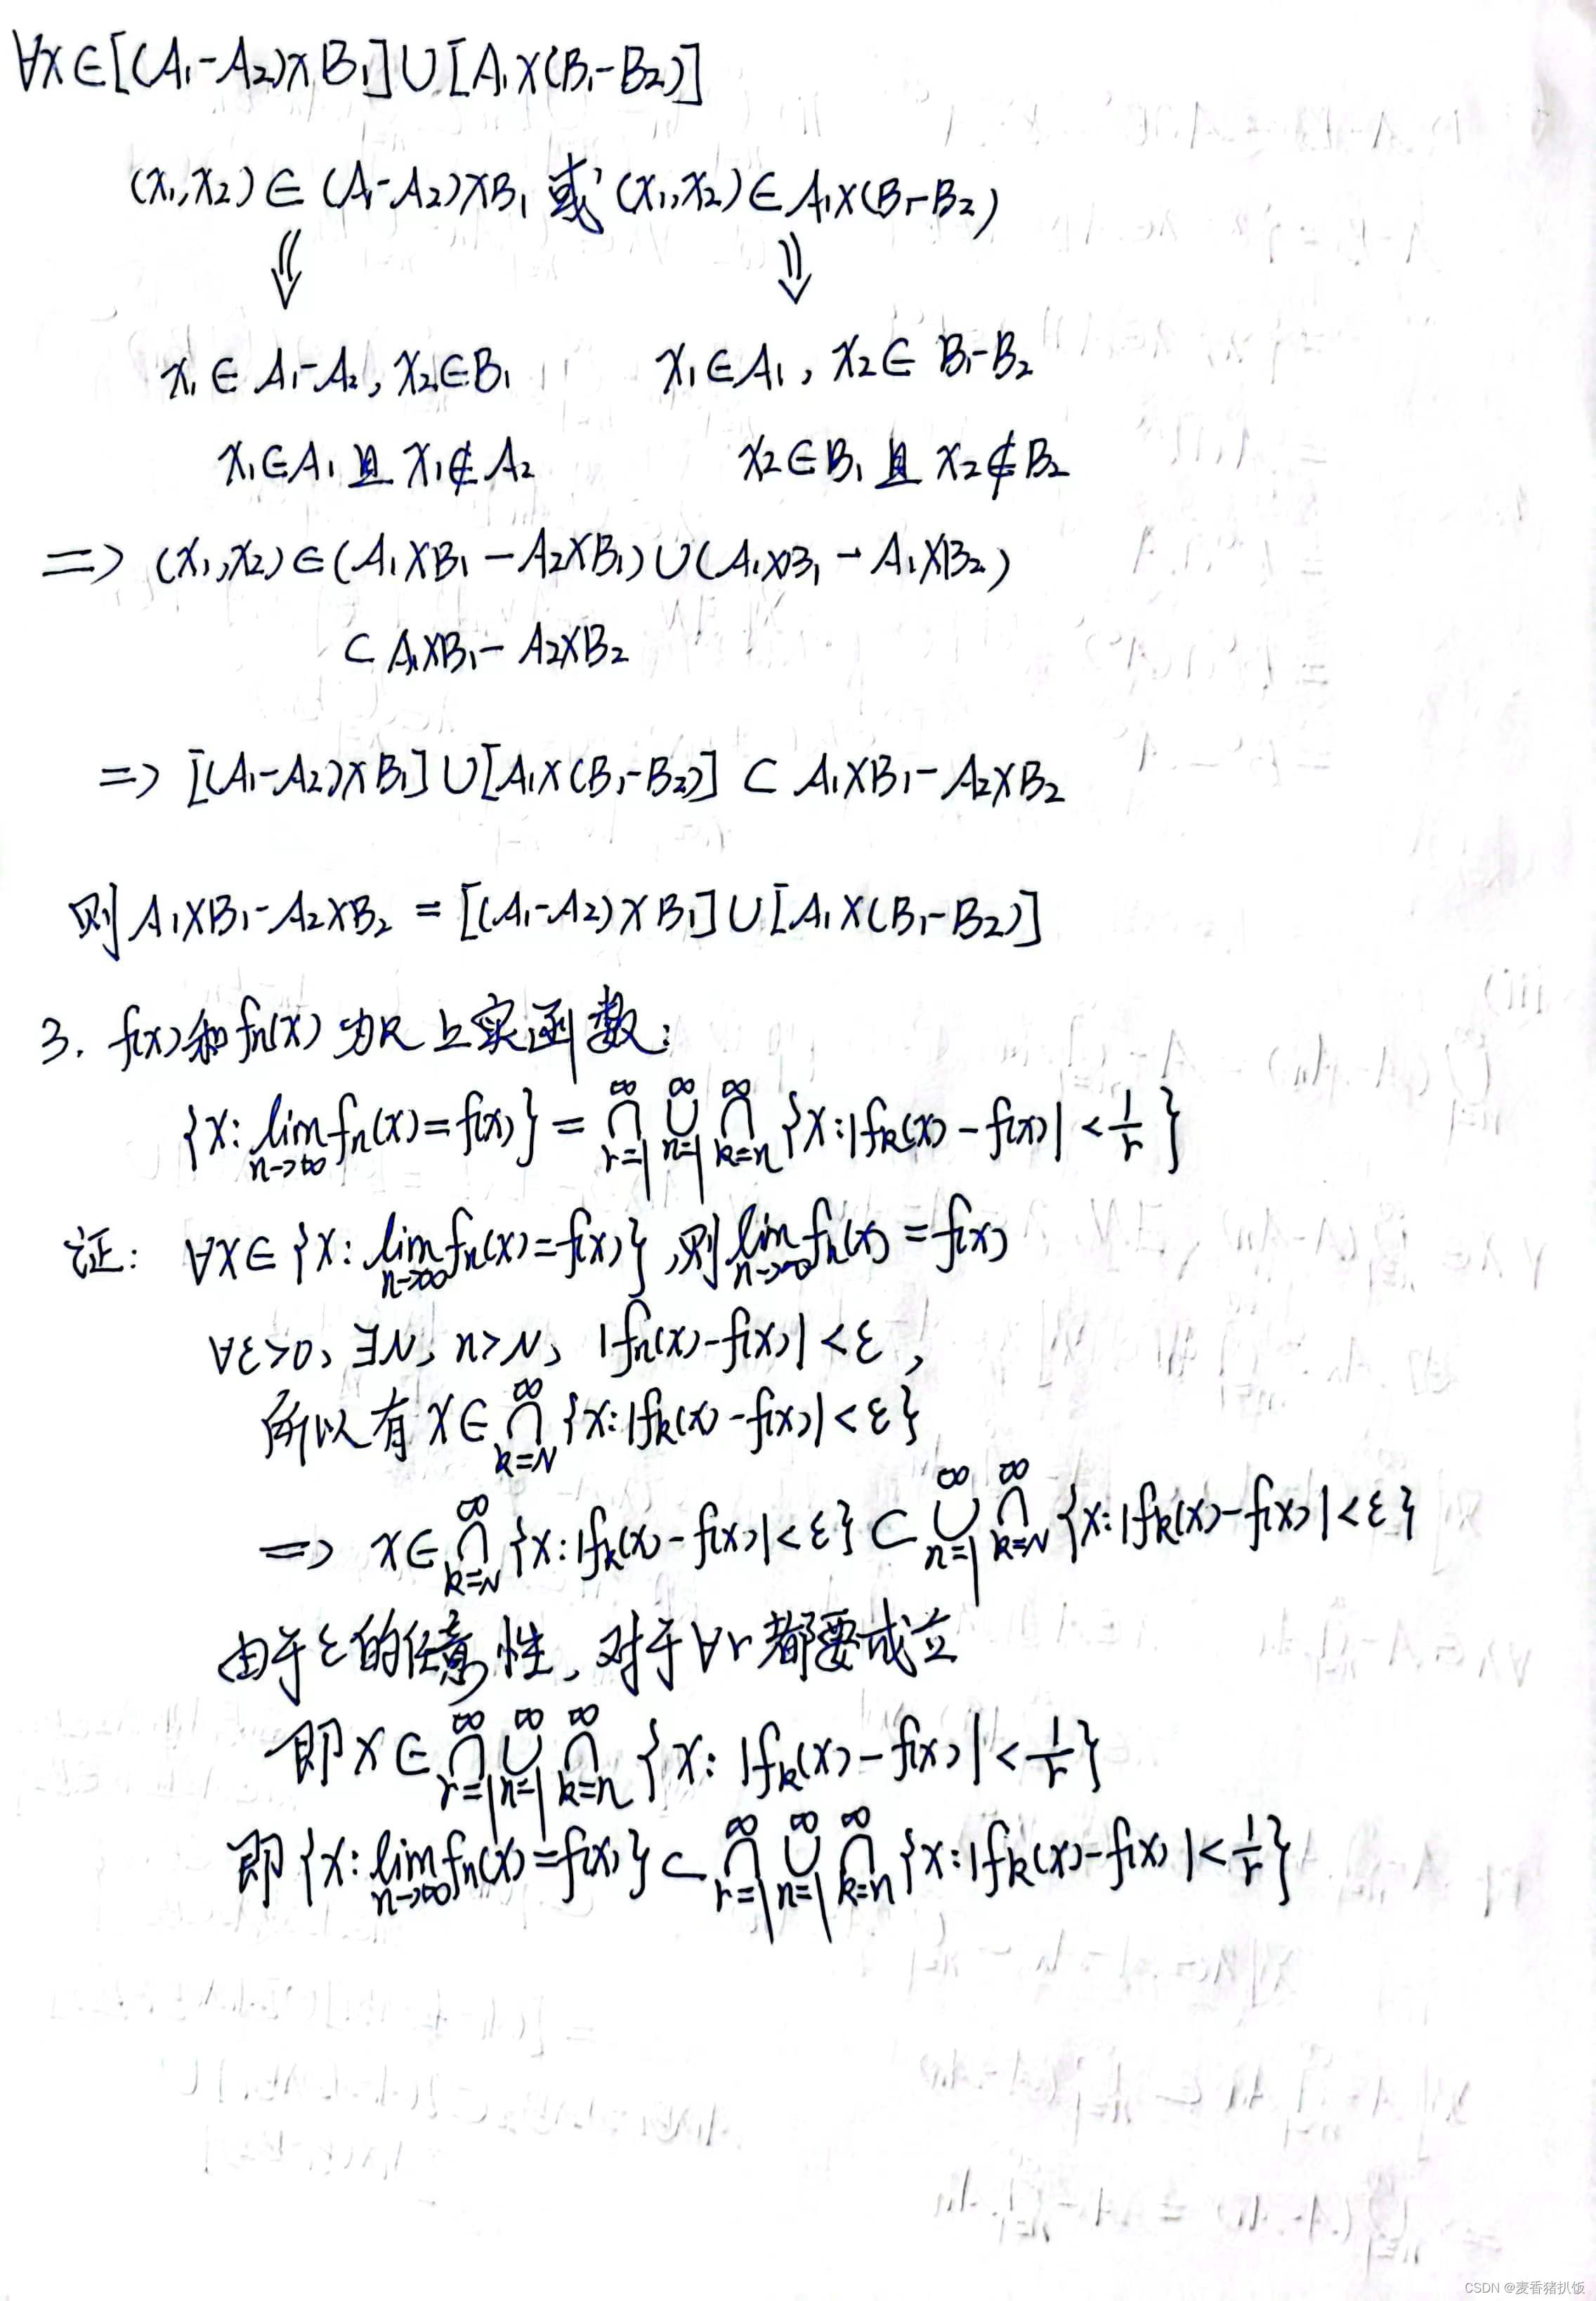 ∀x∈[(A₁-A₂)×B₁]∪[A₁×(B₁-B₂)]
(x₁,x₂)∈(A₁-A₂)×B₁ 或 (x₁,x₂)∈A₁×(B₁-B₂)
⇓ ⇓
x₁∈A₁-A₂, x₂∈B₁ x₁∈A₁, x₂∈B₁-B₂
x₁∈A₁且x₁∉A₂ x₂∈B₁且x₂∉B₂
=> (x₁,x₂)∈(A₁×B₁-A₂×B₁)∪(A₁×B₁-A₁×B₂)
⊂A₁×B₁-A₂×B₂
=> [(A₁-A₂)×B₁]∪[A₁×(B₁-B₂)]⊂A₁×B₁-A₂×B₂
则A₁×B₁-A₂×B₂=[(A₁-A₂)×B₁]∪[A₁×(B₁-B₂)]
3. f(x)和fₙ(x)为R上实函数:
{x: lim_{n->∞} fₙ(x)=f(x)} = ∩_{r=1}^{∞} ∪_{n=1}^{∞} ∩_{k=n}^{∞} {x:|f_k(x)-f(x)|<1/r}
证: ∀x∈{x: lim_{n->∞} fₙ(x)=f(x)},则lim_{n->∞} fₙ(x)=f(x)
∀ε>0, ∃N, n>N, |fₙ(x)-f(x)|<ε,
所以有x∈∩_{k=N}^{∞} {x:|f_k(x)-f(x)|<ε}
=> x∈∩_{k=N}^{∞} {x:|f_k(x)-f(x)|<ε}⊂∪_{n=1}^{∞} ∩_{k=N}^{∞} {x:|f_k(x)-f(x)|<ε}
由于ε的任意性,对于∀r都要成立
即x∈∩_{r=1}^{∞} ∪_{n=1}^{∞} ∩_{k=n}^{∞} {x: |f_k(x)-f(x)|<1/r}
即{x: lim_{n->∞} fₙ(x)=f(x)}⊂∩_{r=1}^{∞} ∪_{n=1}^{∞} ∩_{k=n}^{∞} {x:|f_k(x)-f(x)|<1/r}
CSDN @麦香猪扒饭